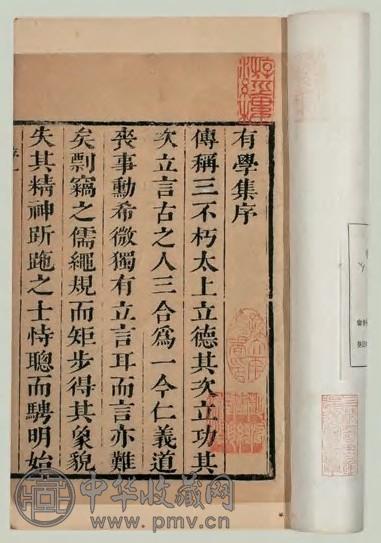 有學集序
傳稱三不朽太上立德其次立功其
次立言古之人三合爲一今仁義道
喪事勳希微獨有立言耳而言亦難
矣剽竊之儒繩規而矩步得其象貌
失其精神斫跪之士恃聰而騁明始
序一
中华收藏网
www.pmv.cn